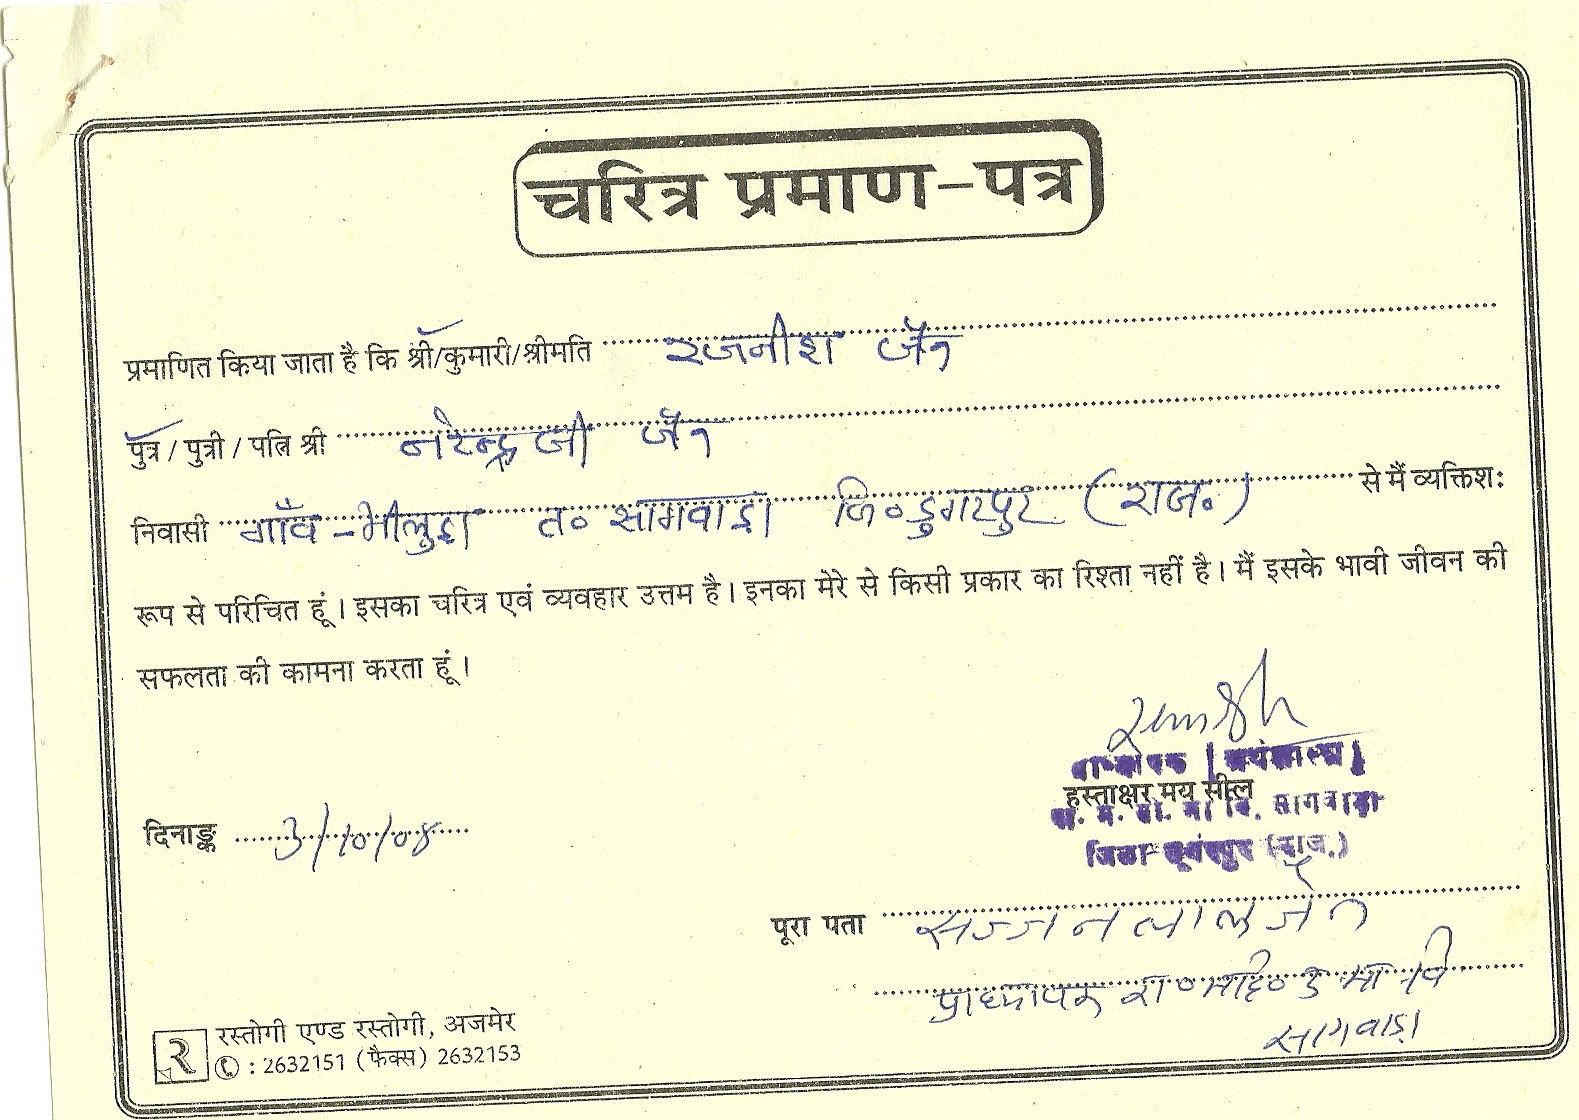 चरित्र प्रमाण-पत्र
प्रमाणित किया जाता है कि श्री/कुमारी/श्रीमति रजनीश जैन
पुत्र / पुत्री / पत्नि श्री नरेन्द्र जी जैन
निवासी गाँव - भीलुड़ा त० सागवाड़ा जि० डुंगरपुर (राज०) से मैं व्यक्तिशः
रूप से परिचित हूं। इसका चरित्र एवं व्यवहार उत्तम है। इनका मेरे से किसी प्रकार का रिश्ता नहीं है। मैं इसके भावी जीवन की
सफलता की कामना करता हूं।
हस्ताक्षर मय सील
सागवाड़ा
दिनाङ्क 3/10/08
जिला (राज.)
पूरा पता सज्जनलाल जैन
प्राध्यापक रा० मा० उ मा वि
सागवाड़ा
रस्तोगी एण्ड रस्तोगी, अजमेर
: 2632151 (फैक्स) 2632153